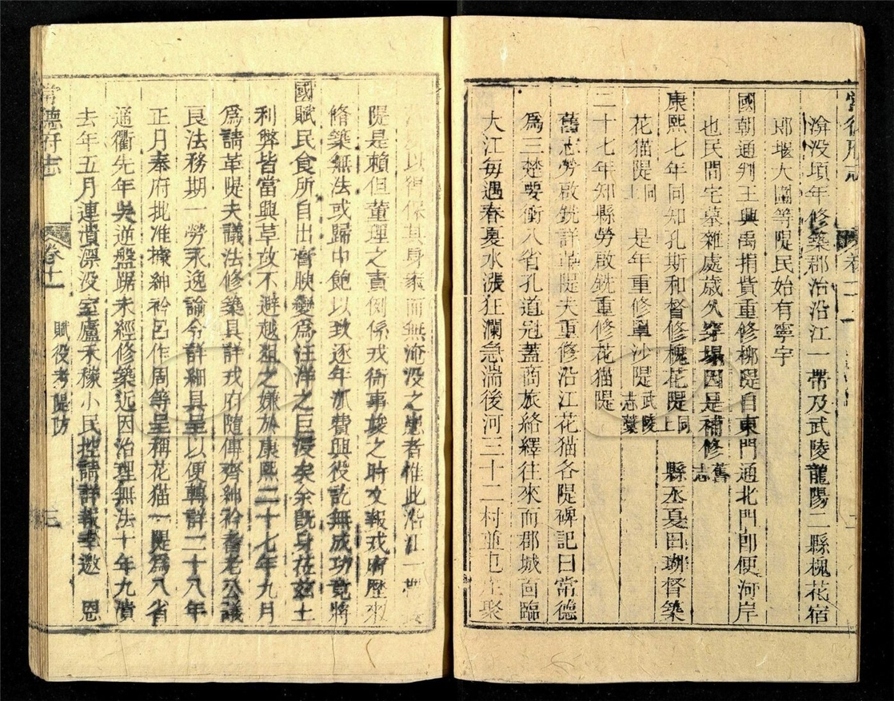 渰没項年修築郡治沿江一帶及武陵龍陽二縣槐花宿
郎堰大圍等隄民始有寧宇
國朝通判王興禹捐貲重修槨隄自東門通北門即便河岸
也民間宅墓雜處歲久穿塌因是補修舊志
康熙七年同知孔斯和督修槐花隄同上 縣丞夏田瑚督築
花猫隄同 是年重修 沙隄武陵志藁
二十七年知縣勞啟銑重修花猫隄
舊志勞啟銑詳革隄夫重修沿江花猫各隄碑記曰常德
爲三楚要衝八省孔道冠蓋商旅絡繹往來而郡城面臨
大江每遇春夏水漲狂瀾急湍後河三十二村並屯庄聚
以得保其身家而無淹没之患者惟此沿江一
隄是賴但董理之責例係戎衙事竣之時文報戎府歷來
脩築無法或歸中飽以致逐年派費興役訖無成功竟將
國賦民食所自出膏腴變爲汪洋之巨浸矣余旣身莅兹土
利弊皆當興革故不避越俎之嫌於康熙二十七年九月
爲請革隄夫議法修築具詳戎府隨傳齊紳衿耆老公議
良法務期一勞永逸諭令詳細具呈以便轉詳二十八年
正月奉府批准據紳衿呂作周等呈稱花猫一隄爲八省
通衢先年吳逆盤踞未經修築近因治理無法十年九潰
去年五月連潰漂没室廬禾稼小民 請詳報幸邀 恩
常德府志
卷十一
賦役考隄防
三